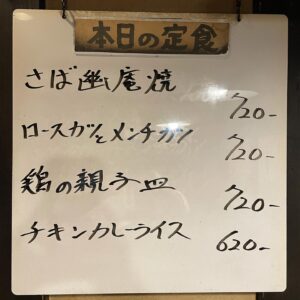 本日の定食
さば幽庵焼
720-
ロースカツとメンチカツ
720-
鶏の親子皿
720-
チキンカレーライス
620-